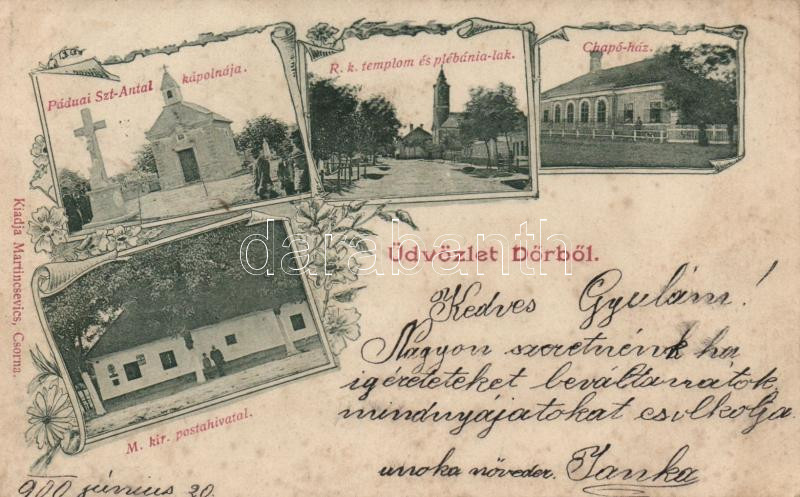 Páduai Szt-Antal kápolnája.
R. k. templom és plébánia-lak.
Chapó-ház.
Kiadja Martincsevics, Csorna.
Üdvözlet Dőrből.
darabanth
M. kir. postahivatal.
Kedves Gyulám!
Nagyon szeretnénk ha
igéreteteket beváltanátok
mindnyájatokat csolkolja
unoka növeder. Janka
900 június 20.